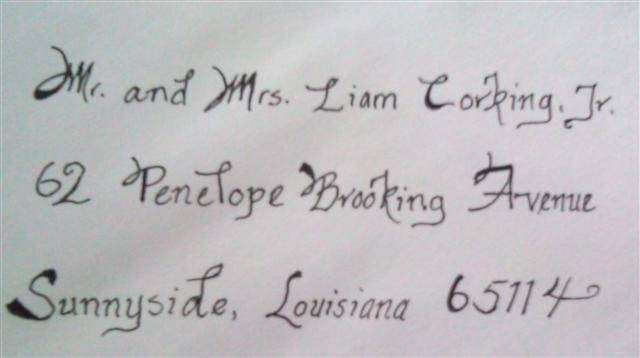 Mr. and Mrs. Liam Corking, Jr.
62 Penelope Brooking Avenue
Sunnyside, Louisiana 65114